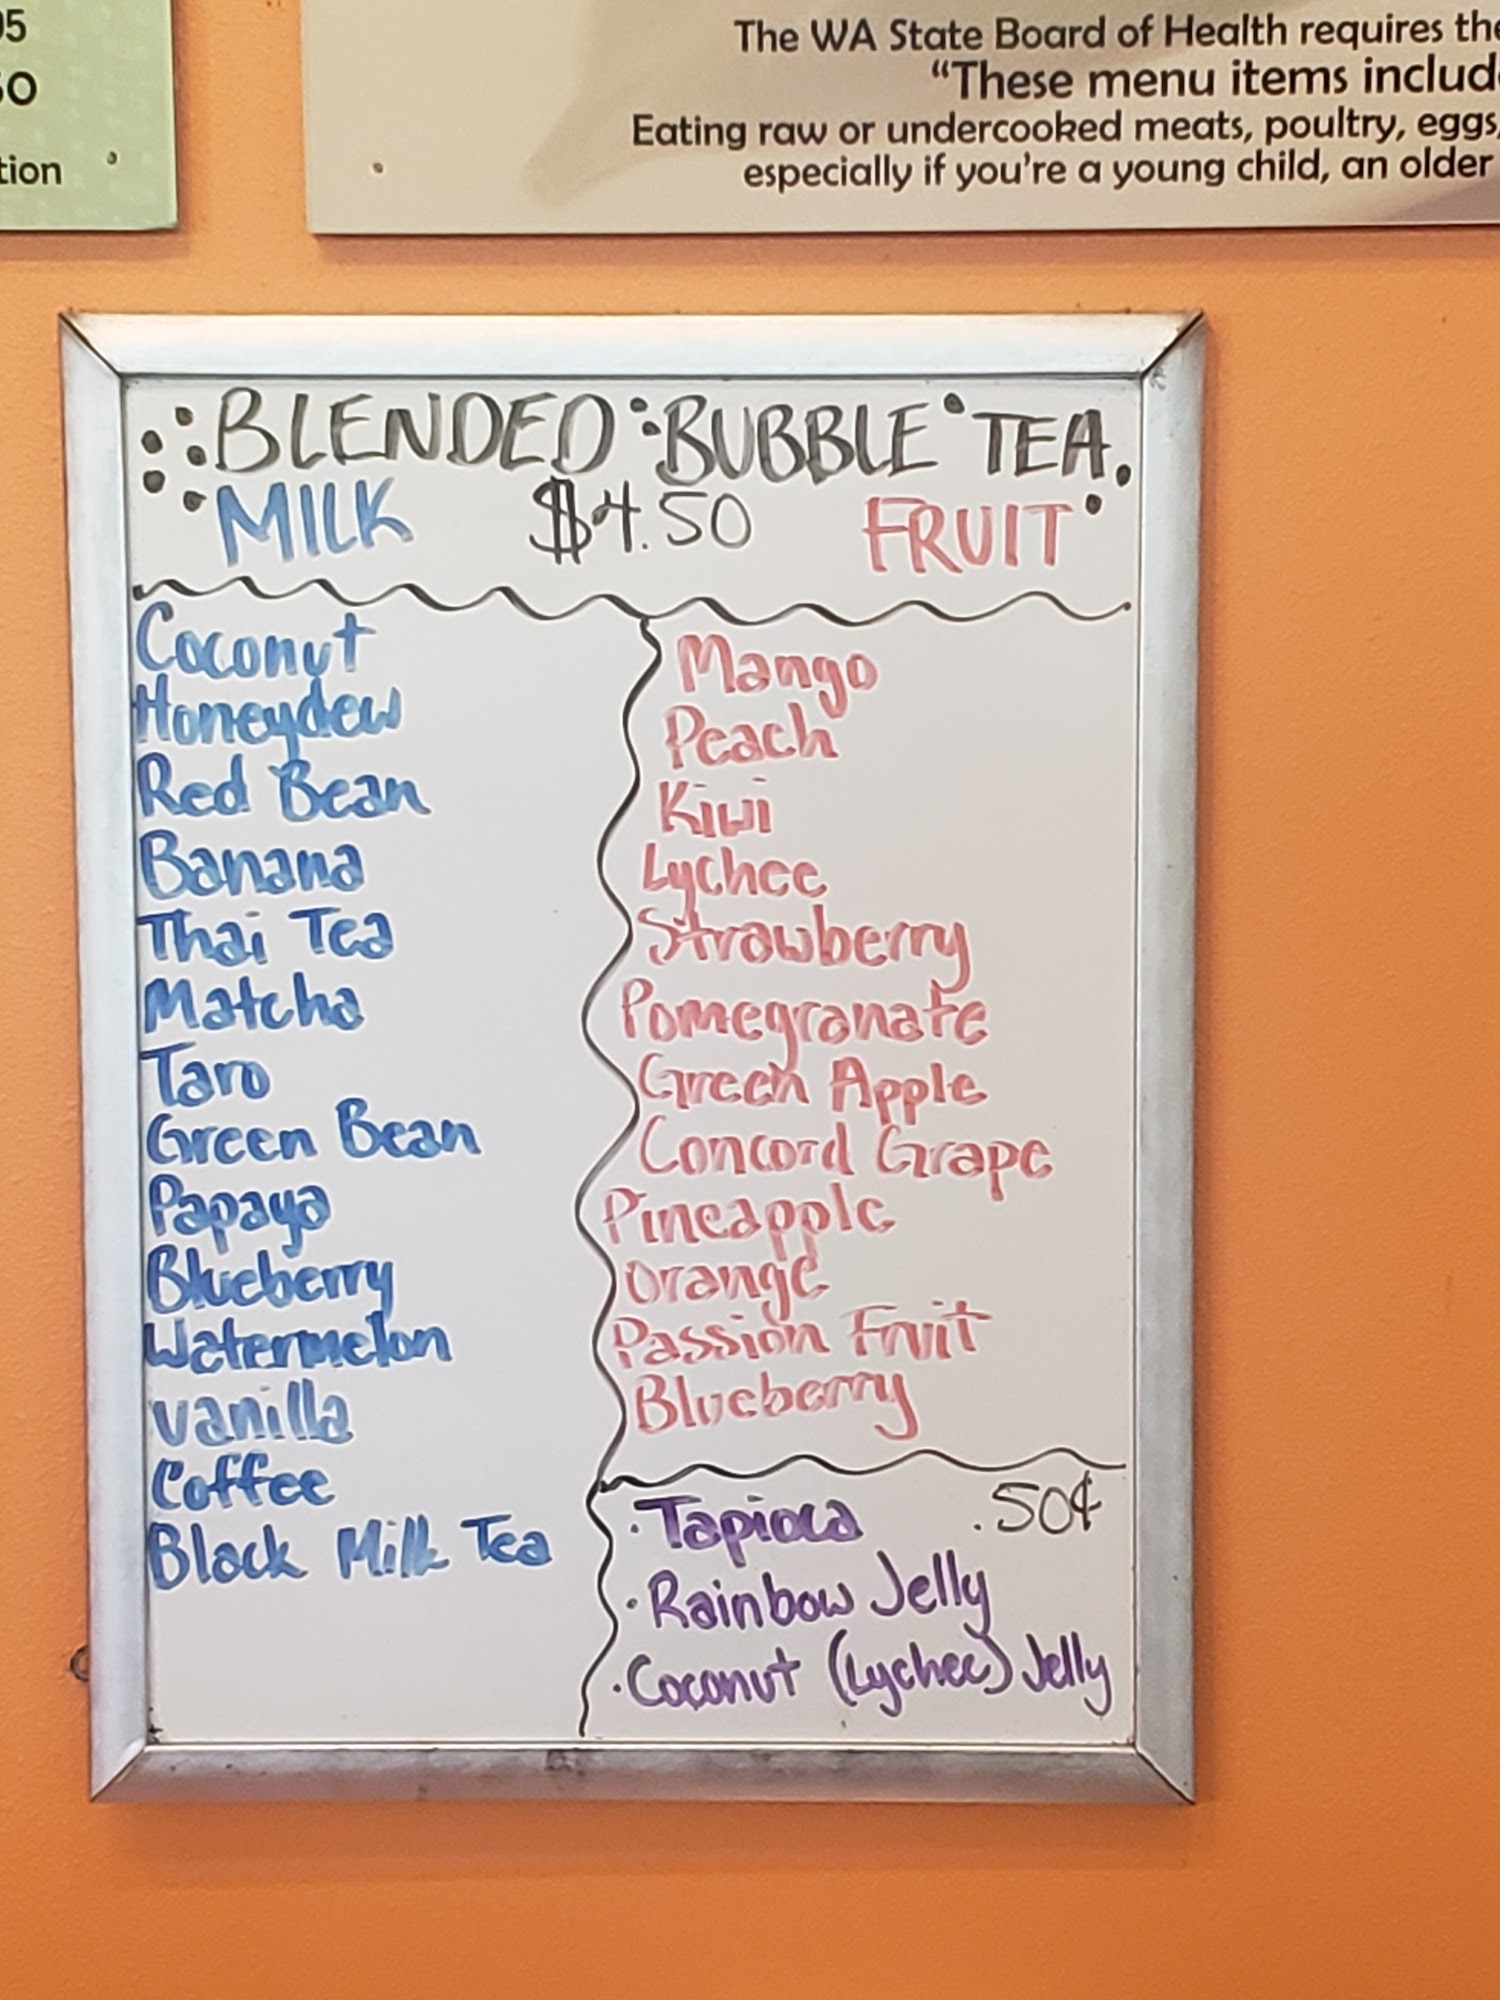 05
50
tion
The WA State Board of Health requires the
"These menu items includ
Eating raw or undercooked meats, poultry, eggs,
especially if you're a young child, an older
BLENDED BUBBLE TEA
MILK $4.50 FRUIT
Coconut
Honeydew
Red Bean
Banana
Thai Tea
Matcha
Taro
Green Bean
Papaya
Blueberry
Watermelon
Vanilla
Coffee
Black Milk Tea
Mango
Peach
Kiwi
Lychee
Strawberry
Pomegranate
Green Apple
Concord Grape
Pineapple
Orange
Passion Fruit
Blueberry
· Tapioca .50¢
· Rainbow Jelly
· Coconut (Lychee) Jelly